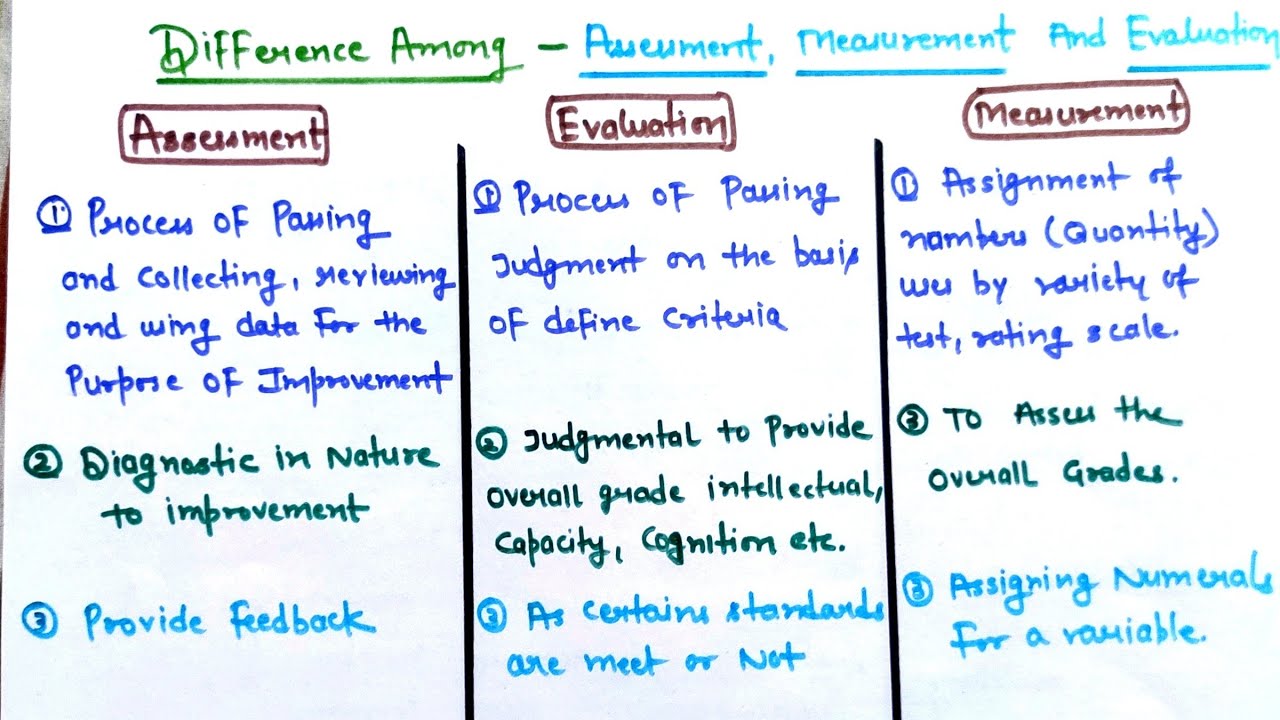 Difference Among - Assessment, Measurement And Evaluation
Assessment
① Process of Passing
and collecting, reviewing
and using data for the
Purpose of Improvement
② Diagnostic in Nature
to improvement
③ Provide feedback
Evaluation
① Process of Passing
Judgment on the basis
of define criteria
② Judgmental to Provide
overall grade intellectual,
capacity, cognition etc.
③ As certains standards
are meet or Not
Measurement
① Assignment of
numbers (Quantity)
uses by variety of
test, rating scale.
② To Assess the
overall Grades.
③ Assigning Numerals
for a variable.